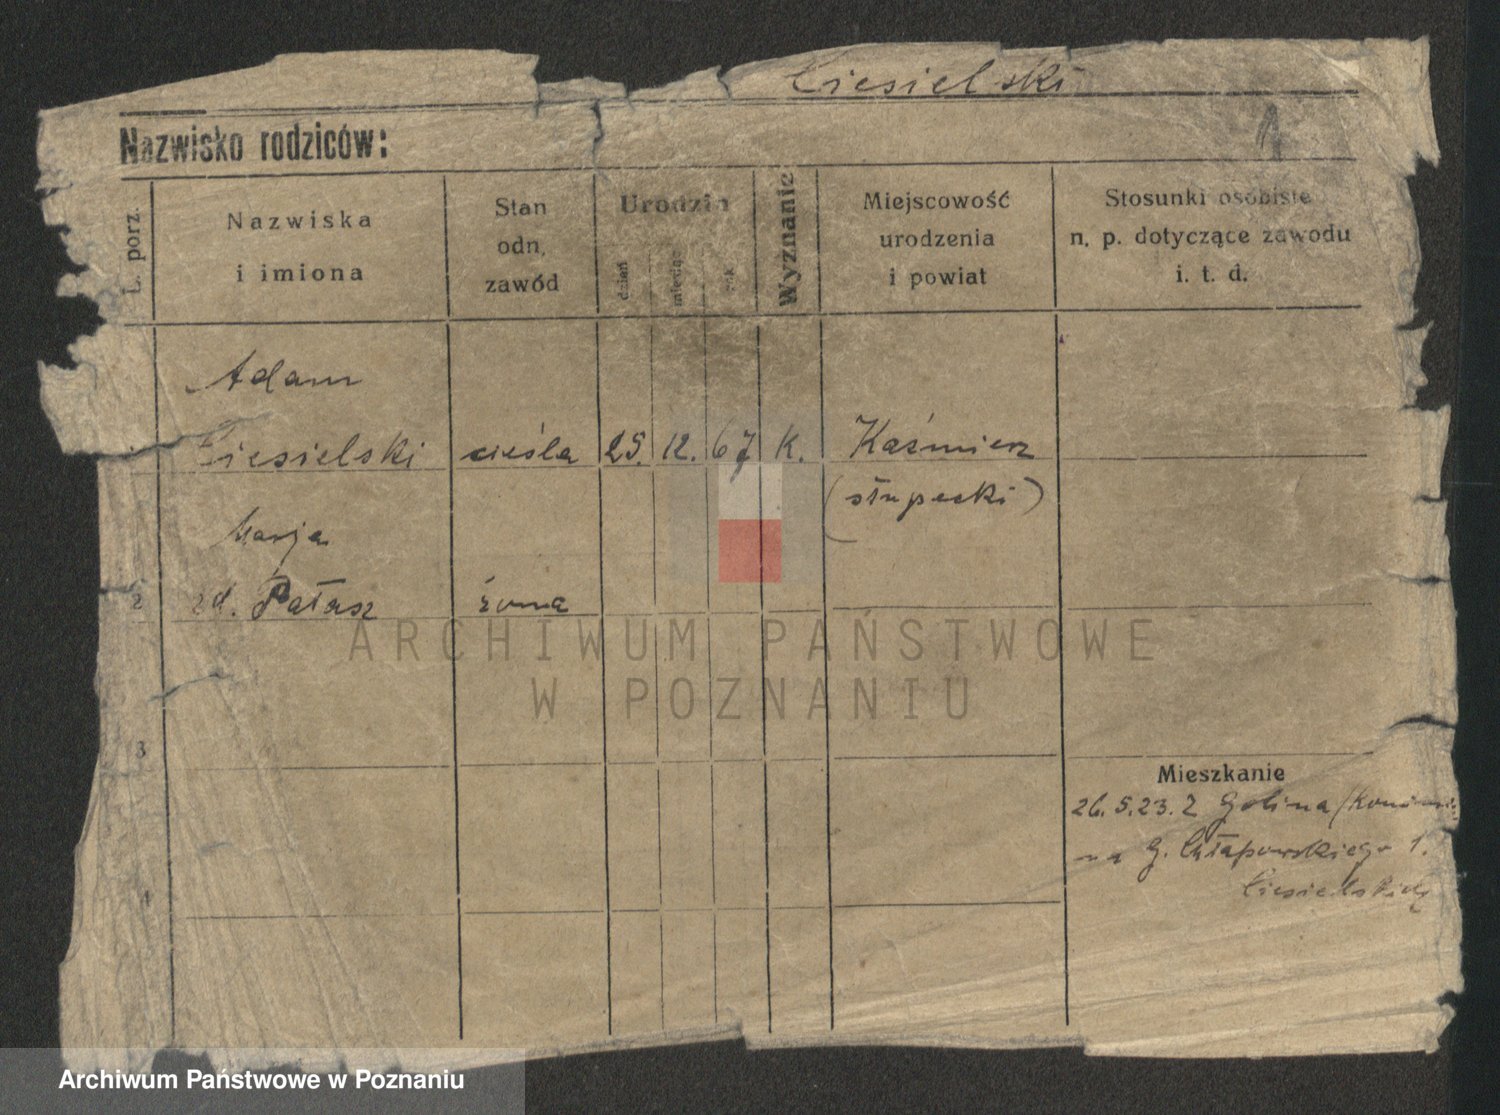 Ciesielski
1
Nazwisko rodziców:
L. porz.
Nazwiska
i imiona
Stan
odn.
zawód
Urodzin
dzień
miesiąc
rok
Wyznanie
Miejscowość
urodzenia
i powiat
Stosunki osobiste
n. p. dotyczące zawodu
i. t. d.
Adam
Ciesielski cieśla 25. 12. 67 K. Kaśmierz
(słupecki)
Marja
2 zd. Pałasz żona
ARCHIWUM PAŃSTWOWE
W POZNANIU
3
Mieszkanie
26.5.23. Z Golina
na G. Chłapowskiego 1.
4
Archiwum Państwowe w Poznaniu